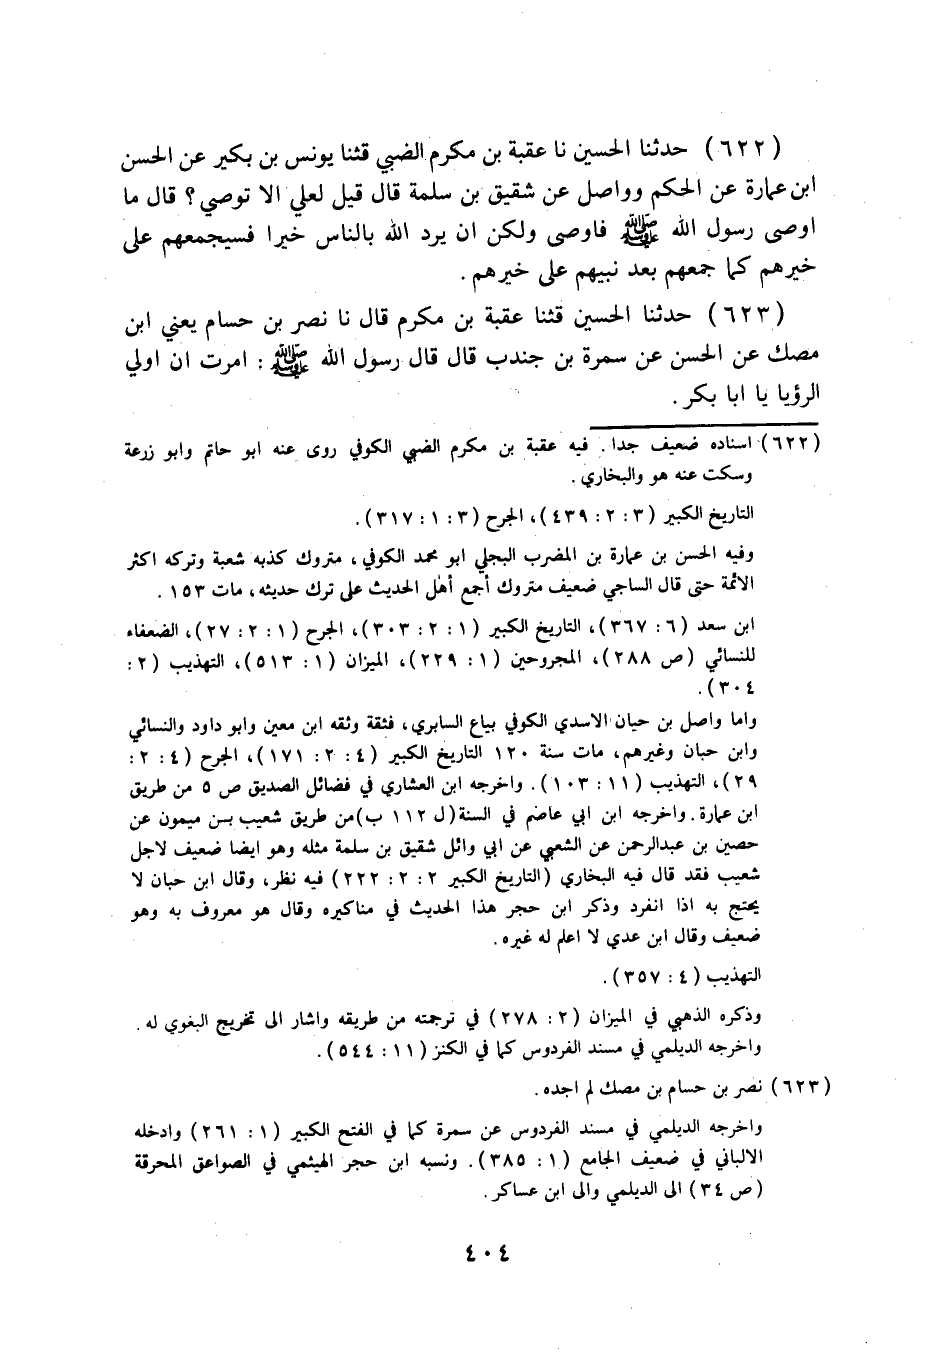 (٦٢٢) حدثنا الحسين نا عقبة بن مكرم الضبي قثنا يونس بن بكير عن الحسن
ابن عمارة عن الحكم وواصل عن شقيق بن سلمة قال قيل لعلي الا توصي؟ قال ما
اوصى رسول الله ﷺ فاوصى ولكن ان يرد الله بالناس خيرا فسيجمعهم على
خيرهم كما جمعهم بعد نبيهم على خيرهم.
(٦٢٣) حدثنا الحسين قثنا عقبة بن مكرم قال نا نصر بن حسام يعني ابن
مصك عن الحسن عن سمرة بن جندب قال قال رسول الله ﷺ: امرت ان اولي
الرؤيا يا ابا بكر.
(٦٢٢) اسناده ضعيف جدا. فيه عقبة بن مكرم الضبي الكوفي روى عنه ابو حاتم وابو زرعة
وسكت عنه هو والبخاري.
التاريخ الكبير (٣: ٢: ٤٣٩)، الجرح (٣: ١: ٣١٧).
وفيه الحسن بن عمارة بن المضرب البجلي ابو محمد الكوفي، متروك كذبه شعبة وتركه اكثر
الائمة حتى قال الساجي ضعيف متروك أجمع أهل الحديث على ترك حديثه، مات ١٥٣.
ابن سعد (٦: ٣٦٧)، التاريخ الكبير (١: ٢: ٣٠٣)، الجرح (١: ٢: ٢٧)، الضعفاء
للنسائي (ص ٢٨٨)، المجروحين (١: ٢٢٩)، الميزان (١: ٥١٣)، التهذيب (٢:
٣٠٤).
واما واصل بن حيان الاسدي الكوفي بياع السابري، فثقة وثقه ابن معين وابو داود والنسائي
وابن حبان وغيرهم، مات سنة ١٢٠ التاريخ الكبير (٤: ٢: ١٧١)، الجرح (٤: ٢:
٢٩)، التهذيب (١١: ١٠٣). واخرجه ابن العشاري في فضائل الصديق ص ٥ من طريق
ابن عمارة. واخرجه ابن ابي عاصم في السنة(ل ١١٢ ب)من طريق شعيب بن ميمون عن
حصين بن عبدالرحمن عن الشعبي عن ابي وائل شقيق بن سلمة مثله وهو ايضا ضعيف لاجل
شعيب فقد قال فيه البخاري (التاريخ الكبير ٢: ٢: ٢٢٢) فيه نظر، وقال ابن حبان لا
يحتج به اذا انفرد وذكر ابن حجر هذا الحديث في مناكيره وقال هو معروف به وهو
ضعيف وقال ابن عدي لا اعلم له غيره.
التهذيب (٤: ٣٥٧).
وذكره الذهبي في الميزان (٢: ٢٧٨) في ترجمته من طريقه واشار الى تخريج البغوي له.
واخرجه الديلمي في مسند الفردوس كما في الكنز (١١: ٥٤٤).
(٦٢٣) نصر بن حسام بن مصك لم اجده.
واخرجه الديلمي في مسند الفردوس عن سمرة كما في الفتح الكبير (١: ٢٦١) وادخله
الالباني في ضعيف الجامع (١: ٣٨٥). ونسبه ابن حجر الهيثمي في الصواعق المحرقة
(ص ٣٤) الى الديلمي والى ابن عساكر.
٤٠٤